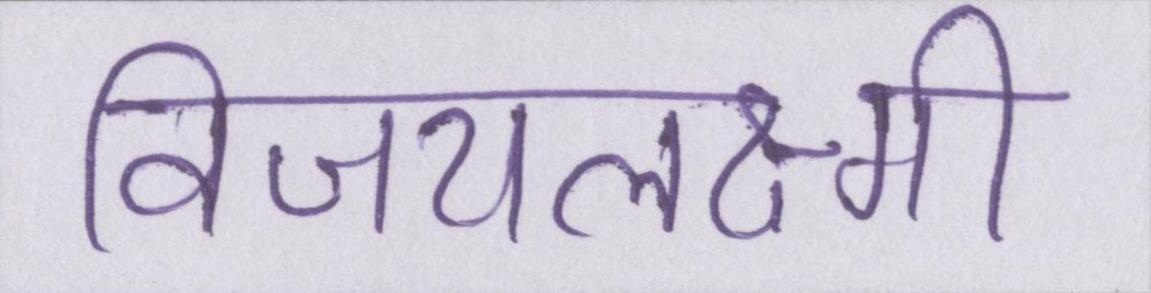 विजयलक्ष्मी